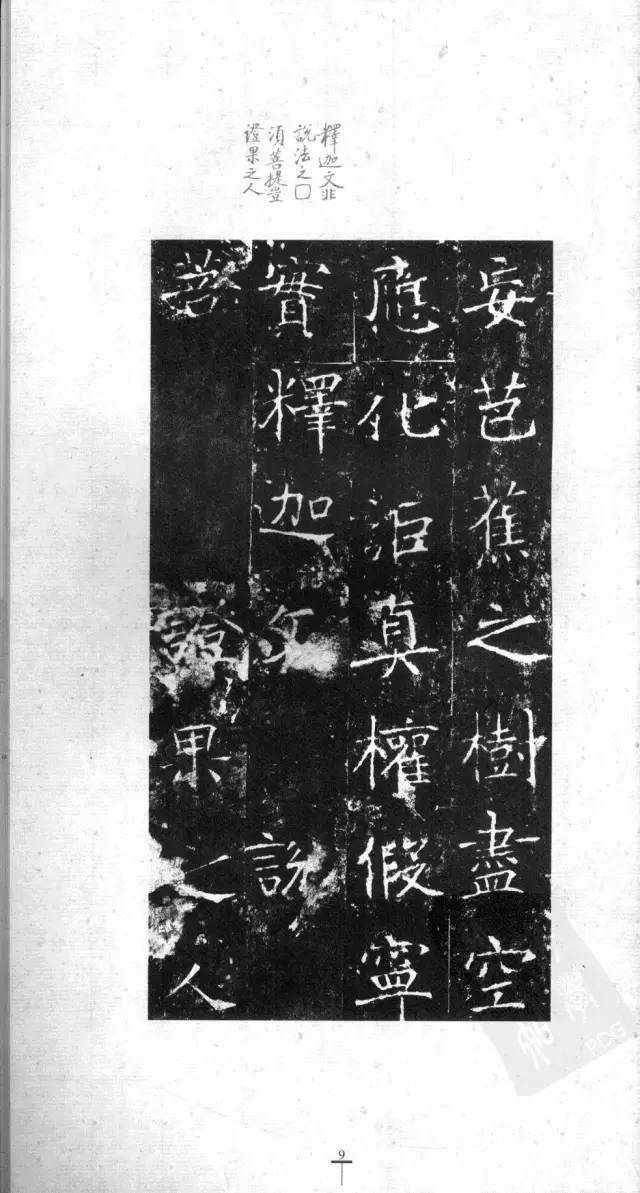 釋迦文非
說法之□
須菩提豈
證果之人
妄芭蕉之樹盡空
應化詎真權假寧
實釋迦文說
菩證果之人
PDG
9